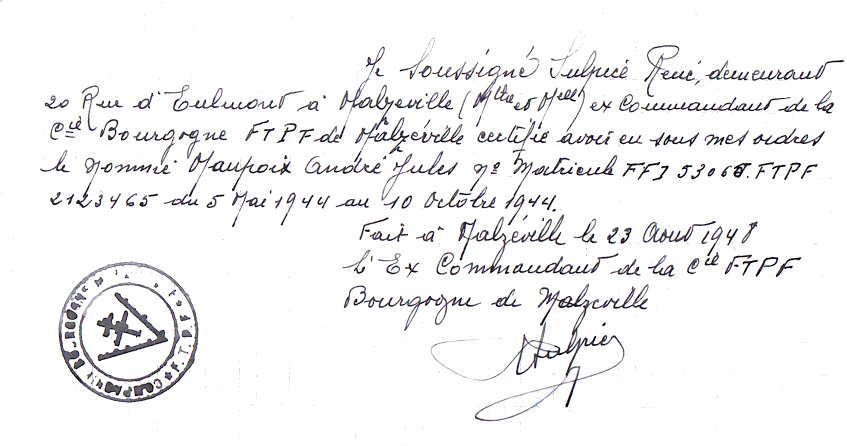 Je Soussigné Sulpice René, demeurant
20 Rue d'Eulmont à Malzeville (Mthe et Melle) ex Commandant de la
Cie Bourgogne FTPF de Malzéville certifie avoir eu sous mes ordres
le nommé Maupoix André Jules No Matricule FFI 53068. FTPF
2123465 du 5 Mai 1944 au 10 Octobre 1944.
Fait à Malzéville le 23 Aout 1948
L'Ex Commandant de la Cie FTPF
Bourgogne de Malzeville
COMPAGNIE BOURGOGNE F.T.P.F.